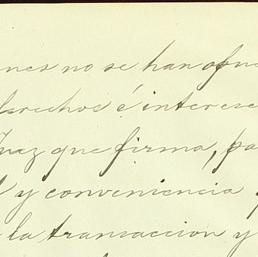 nes no se han ofre
derechos é interese
Juez que firma, pa
y conveniencia
la transaccion y